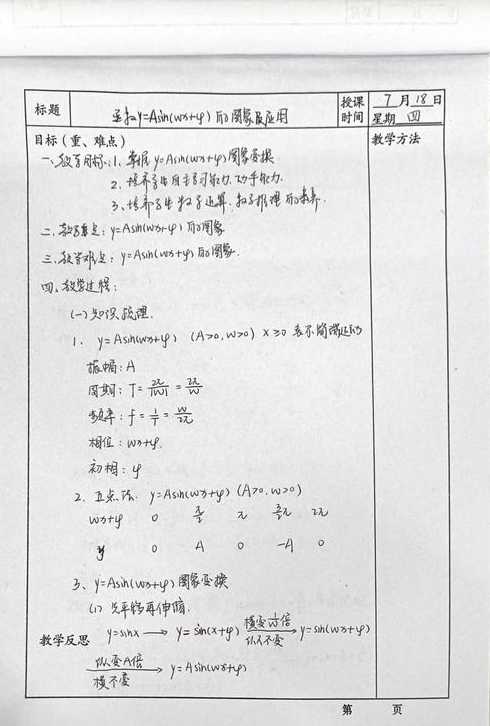 标题 函数y=Asin(ωx+φ)的图象及应用 授课时间 7月18日 星期四
目标(重、难点) 教学方法
一、教学目标:1、掌握y=Asin(ωx+φ)图象变换
2、培养学生自主学习能力、动手能力.
3、培养学生数学运算、数学推理的素养.
二、教学重点:y=Asin(ωx+φ)的图象
三、教学难点:y=Asin(ωx+φ)的图象.
四、教学过程:
(一)知识梳理.
1、y=Asin(ωx+φ) (A>0,ω>0) x≥0 表示简谐运动
振幅:A
周期:T=2π/|ω|=2π/ω
频率:f=1/T=ω/2π
相位:ωx+φ.
初相:φ
2、五点法: y=Asin(ωx+φ) (A>0,ω>0)
ωx+φ 0 π/2 π 3/2π 2π
y 0 A 0 -A 0
3、y=Asin(ωx+φ)图象变换
(1) 先平移再伸缩.
y=sinx → y=sin(x+φ) 横变1/ω倍 纵不变 → y=sin(ωx+φ)
教学反思
纵变A倍 横不变 → y=Asin(ωx+φ)
第 页